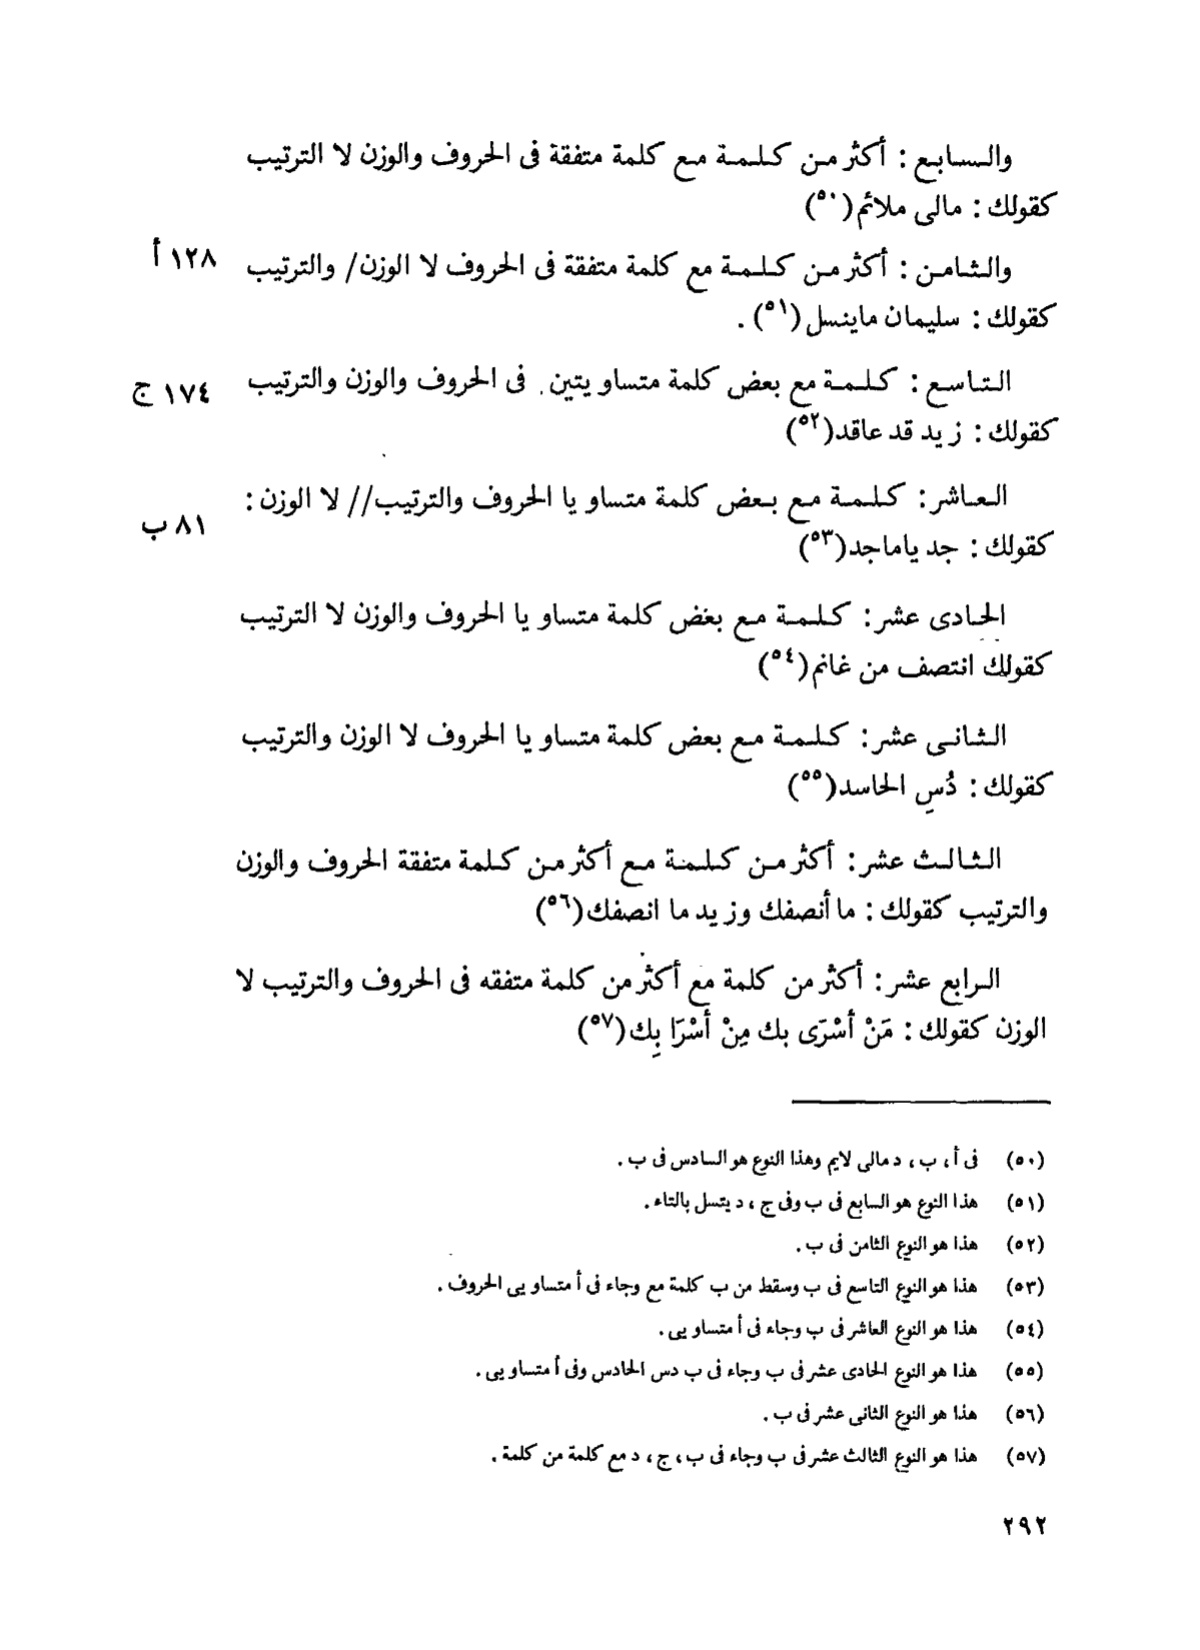 والسابع : أكثر من كلمة مع كلمة متفقة فى الحروف والوزن لا الترتيب
كقولك : مالى ملائم (٥٠)
والثامن : أكثر من كلمة مع كلمة متفقة فى الحروف لا الوزن/ والترتيب
١٢٨ أ
كقولك : سليمان ماينسل (٥١) .
التاسع : كلمة مع بعض كلمة متساويتين فى الحروف والوزن والترتيب
١٧٤ ج
كقولك : زيد قد عاقد (٥٢)
العاشر : كلمة مع بعض كلمة متساويا الحروف والترتيب// لا الوزن :
٨١ ب
كقولك : جد ياماجد (٥٣)
الحادى عشر : كلمة مع بغض كلمة متساويا الحروف والوزن لا الترتيب
كقولك انتصف من غانم (٥٤)
الثانى عشر : كلمة مع بعض كلمة متساويا الحروف لا الوزن والترتيب
كقولك : دُسِ الحاسد (٥٥)
الثالث عشر : أكثر من كلمة مع أكثر من كلمة متفقة الحروف والوزن
والترتيب كقولك : ما أنصفك وزيد ما انصفك (٥٦)
الرابع عشر : أكثر من كلمة مع أكثر من كلمة متفقه فى الحروف والترتيب لا
الوزن كقولك : مَنْ أسْرَى بك مِنْ أسْرَا بِك (٥٧)
(٥٠) فى أ ، ب ، د مالى لايم وهذا النوع هو السادس فى ب .
(٥١) هذا النوع هو السابع فى ب وفى ج ، د يتسل بالتاء .
(٥٢) هذا هو النوع الثامن فى ب .
(٥٣) هذا هو النوع التاسع فى ب وسقط من ب كلمة مع وجاء فى أ متساويى الحروف .
(٥٤) هذا هو النوع العاشر فى ب وجاء فى أ متساويى .
(٥٥) هذا هو النوع الحادى عشر فى ب وجاء فى ب دس الحادس وفى أ متساويى .
(٥٦) هذا هو النوع الثانى عشر فى ب .
(٥٧) هذا هو النوع الثالث عشر فى ب وجاء فى ب ، ج ، د مع كلمة من كلمة .
٢٩٢